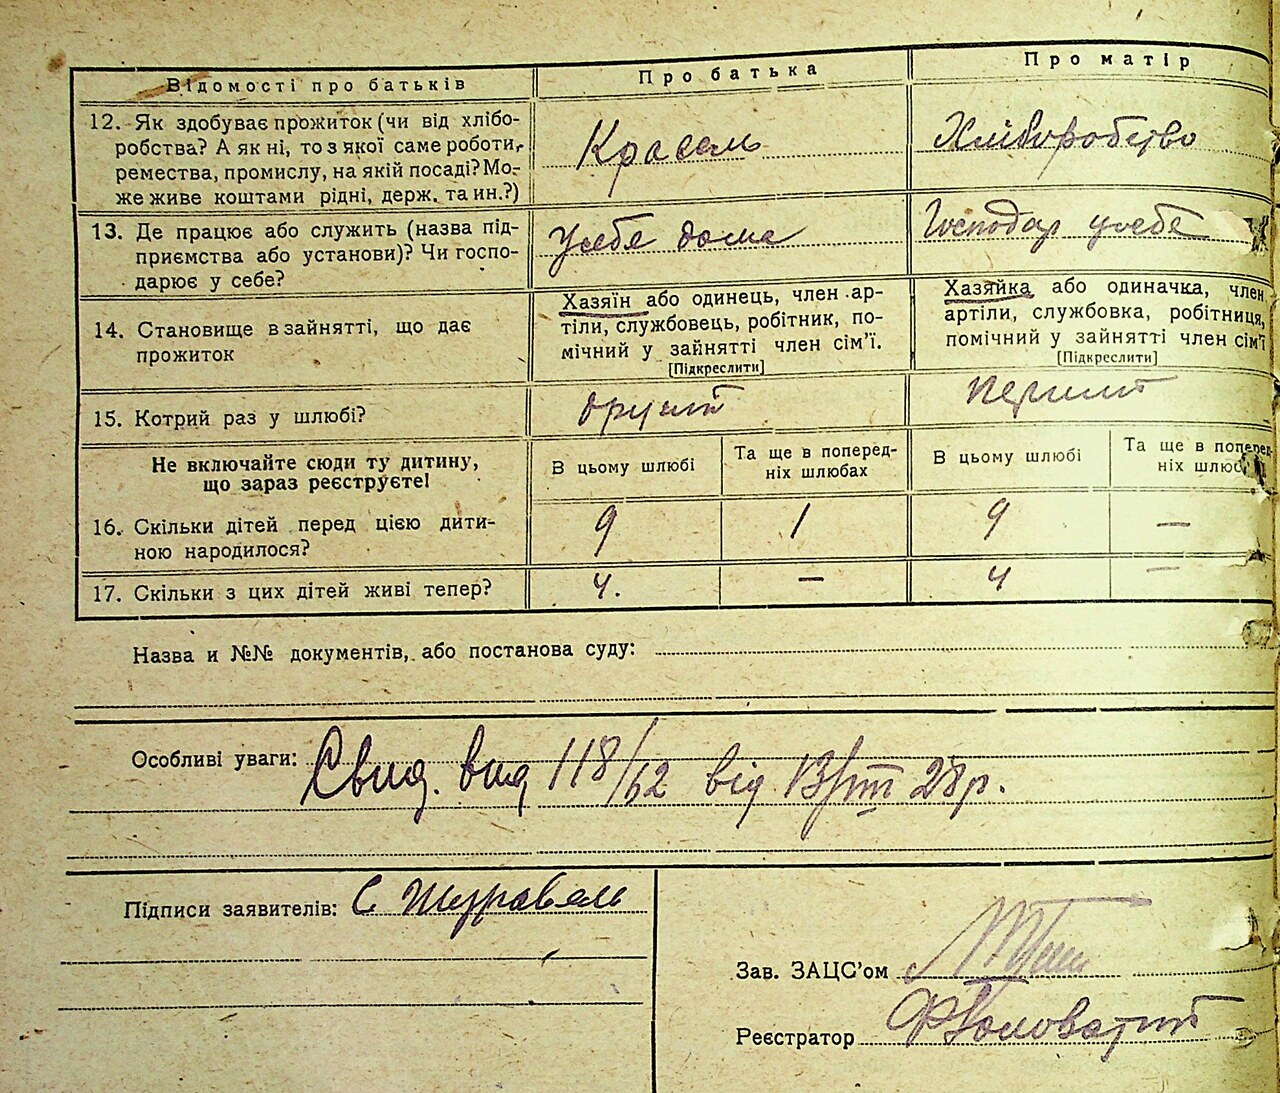 Відомості про батьків
Про батька
Про матір
12. Як здобуває прожиток (чи від хлібо-
робства? А як ні, то з якої саме роботи,
ремества, промислу, на якій посаді? Мо-
же живе коштами рідні, держ. та ин.?)
Кравець
Хліборобство
13. Де працює або служить (назва під-
приємства або установи)? Чи госпо-
дарює у себе?
У себе дома
Господар у себе
14. Становище в зайнятті, що дає
прожиток
Хазяїн або одинець, член ар-
тіли, службовець, робітник, по-
мічний у зайнятті член сім'ї.
[Підкреслити]
Хазяйка або одиначка, член
артіли, службовка, робітниця,
помічний у зайнятті член сім'ї
[Підкреслити]
15. Котрий раз у шлюбі?
другий
перший
Не включайте сюди ту дитину,
що зараз реєструєте!
В цьому шлюбі
Та ще в поперед-
ніх шлюбах
В цьому шлюбі
Та ще в поперед-
ніх шлюб
16. Скільки дітей перед цією дити-
ною народилося?
9
1
9
—
17. Скільки з цих дітей живі тепер?
4.
—
4
—
Назва и №№ документів, або постанова суду:
Особливі уваги: Свид. вид 118/62 від 13/III 28 р.
Підписи заявителів: С Журавель
Зав. ЗАЦС'ом
Реєстратор Головатий